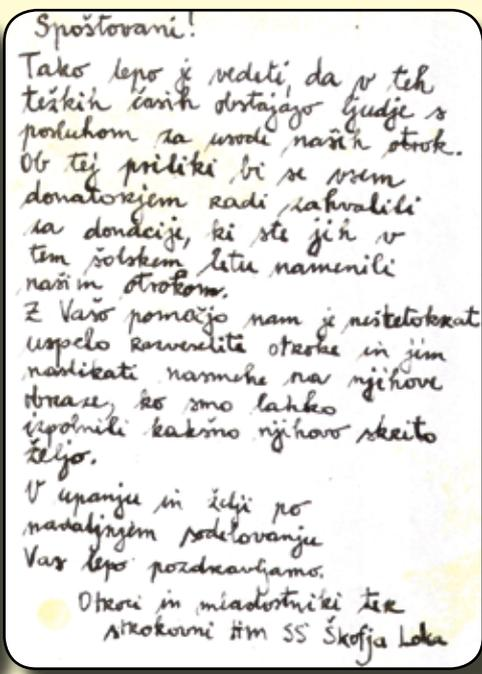 Spoštovani!
Tako lepo je vedeti, da v teh
težkih časih obstajajo ljudje s
posluhom za usode naših otrok.
Ob tej priliki bi se vsem
donatorjem radi zahvalili
za donacije, ki ste jih v
tem šolskem letu namenili
našim otrokom.
Z Vašo pomočjo nam je neštetokrat
uspelo razveseliti otroke in jim
naslikati nasmehe na njihove
obraze, ko smo lahko
izpolnili kakšno njihovo skrito
željo.
V upanju in želji po
nadaljnjem sodelovanju
Vas lepo pozdravljamo.
Otroci in mladostniki ter
strokovni tim SS Škofja Loka